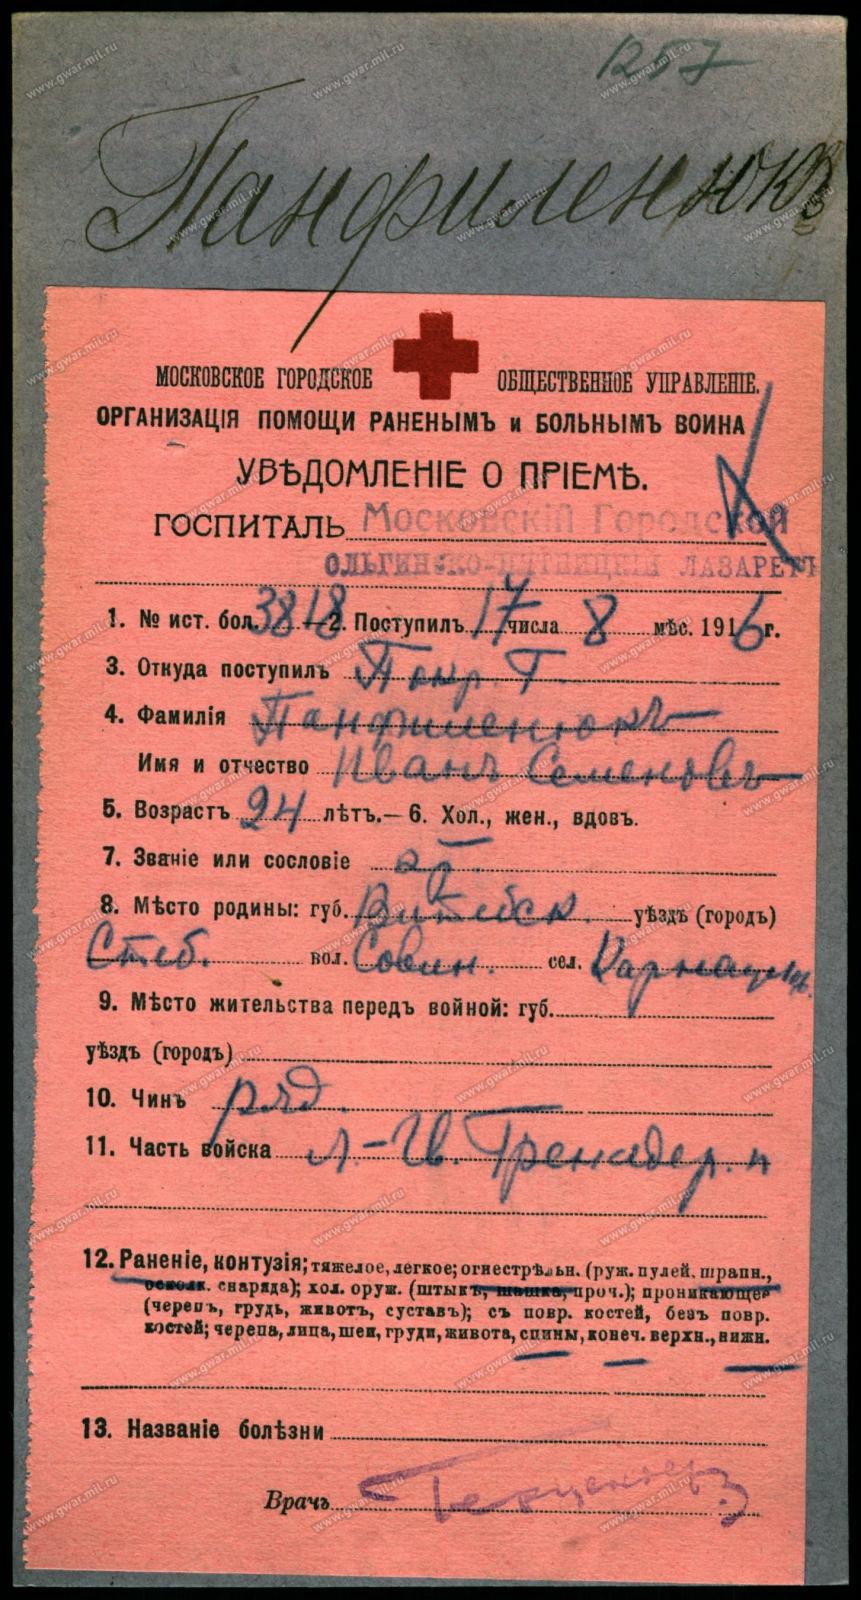 1257
Панфиленюкъ
МОСКОВСКОЕ ГОРОДСКОЕ ОБЩЕСТВЕННОЕ УПРАВЛЕНІЕ.
ОРГАНИЗАЦІЯ ПОМОЩИ РАНЕНЫМЪ и БОЛЬНЫМЪ ВОИНА
УВѢДОМЛЕНІЕ О ПРІЕМѢ.
ГОСПИТАЛЬ Московскій Городской
ОЛЬГИНСКО-ПЯТНИЦКІЙ ЛАЗАРЕТЪ
1. № ист. бол. 3818 —2. Поступилъ 17 числа 8 мѣс. 1916 г.
3. Откуда поступилъ Покр. Г.
4. Фамилія Панфиленюкъ
Имя и отчество Иванъ Семеновъ
5. Возрастъ 24 лѣтъ.— 6. Хол., жен., вдовъ.
7. Званіе или сословіе кр.
8. Мѣсто родины: губ. Витебск. уѣздъ (городъ)
Стеб. вол. Совин. сел.
9. Мѣсто жительства передъ войной: губ.
уѣздъ (городъ)
10. Чинъ ряд.
11. Часть войска Л.-Гв. Гренадер. п
12. Раненіе, контузія; тяжелое, легкое; огнестрѣльн. (руж. пулей, шрапн.,
осколк. снаряда); хол. оруж. (штыкъ, шашка, проч.); проникающее
(черепъ, грудь, животъ, суставъ); съ повр. костей, безъ повр.
костей; черепа, лица, шеи, груди, живота, спины, конеч. верхн., нижн.
13. Названіе болѣзни
Врачъ